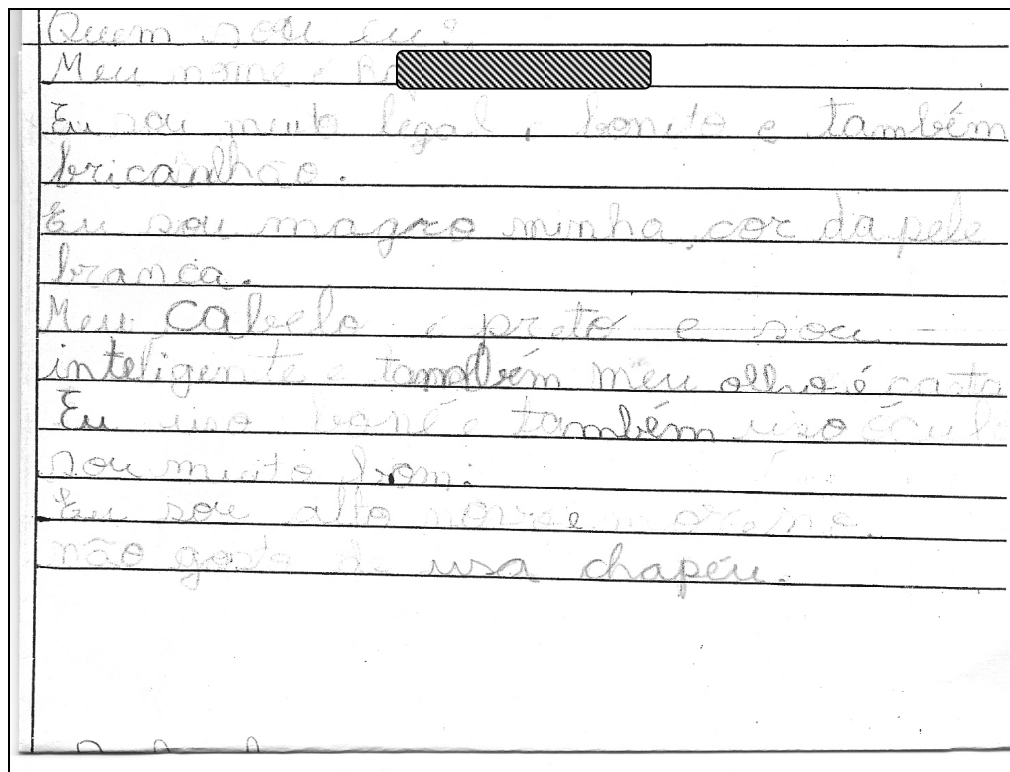 Quem sou eu?
Meu nome é
Eu sou muito legal, bonito e também
bricanlhão.
Eu sou magro minha cor da pele
branca.
Meu cabelo é preto e sou
inteligente e também meu olho é casta
Eu uso boné e também uso ócul
sou muito bom.
Eu sou alto
não gosto de usa chapéu.